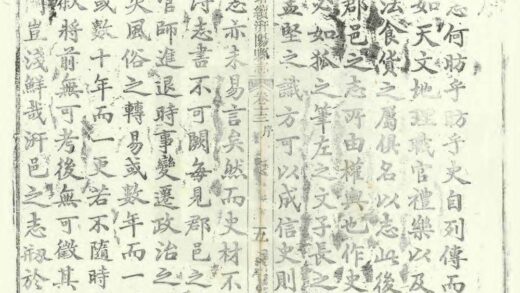 志何昉乎昉乎史自列傳而
如天文地理職官禮樂以及
法食貨之屬俱名以志此後
郡邑之志所由權輿也作史
必如狐之筆左之文子長之
孟堅之識方可以成信史則
陽 卷之 序 五
志亦未易言矣然而史材不
得志書不可闕每見郡邑之
官師進退時事變遷政治之
風俗之轉易或數年而一
或數十年而一更若不隨時
將前無可考後無可徵其
豈淺鮮哉汧邑之志剏於